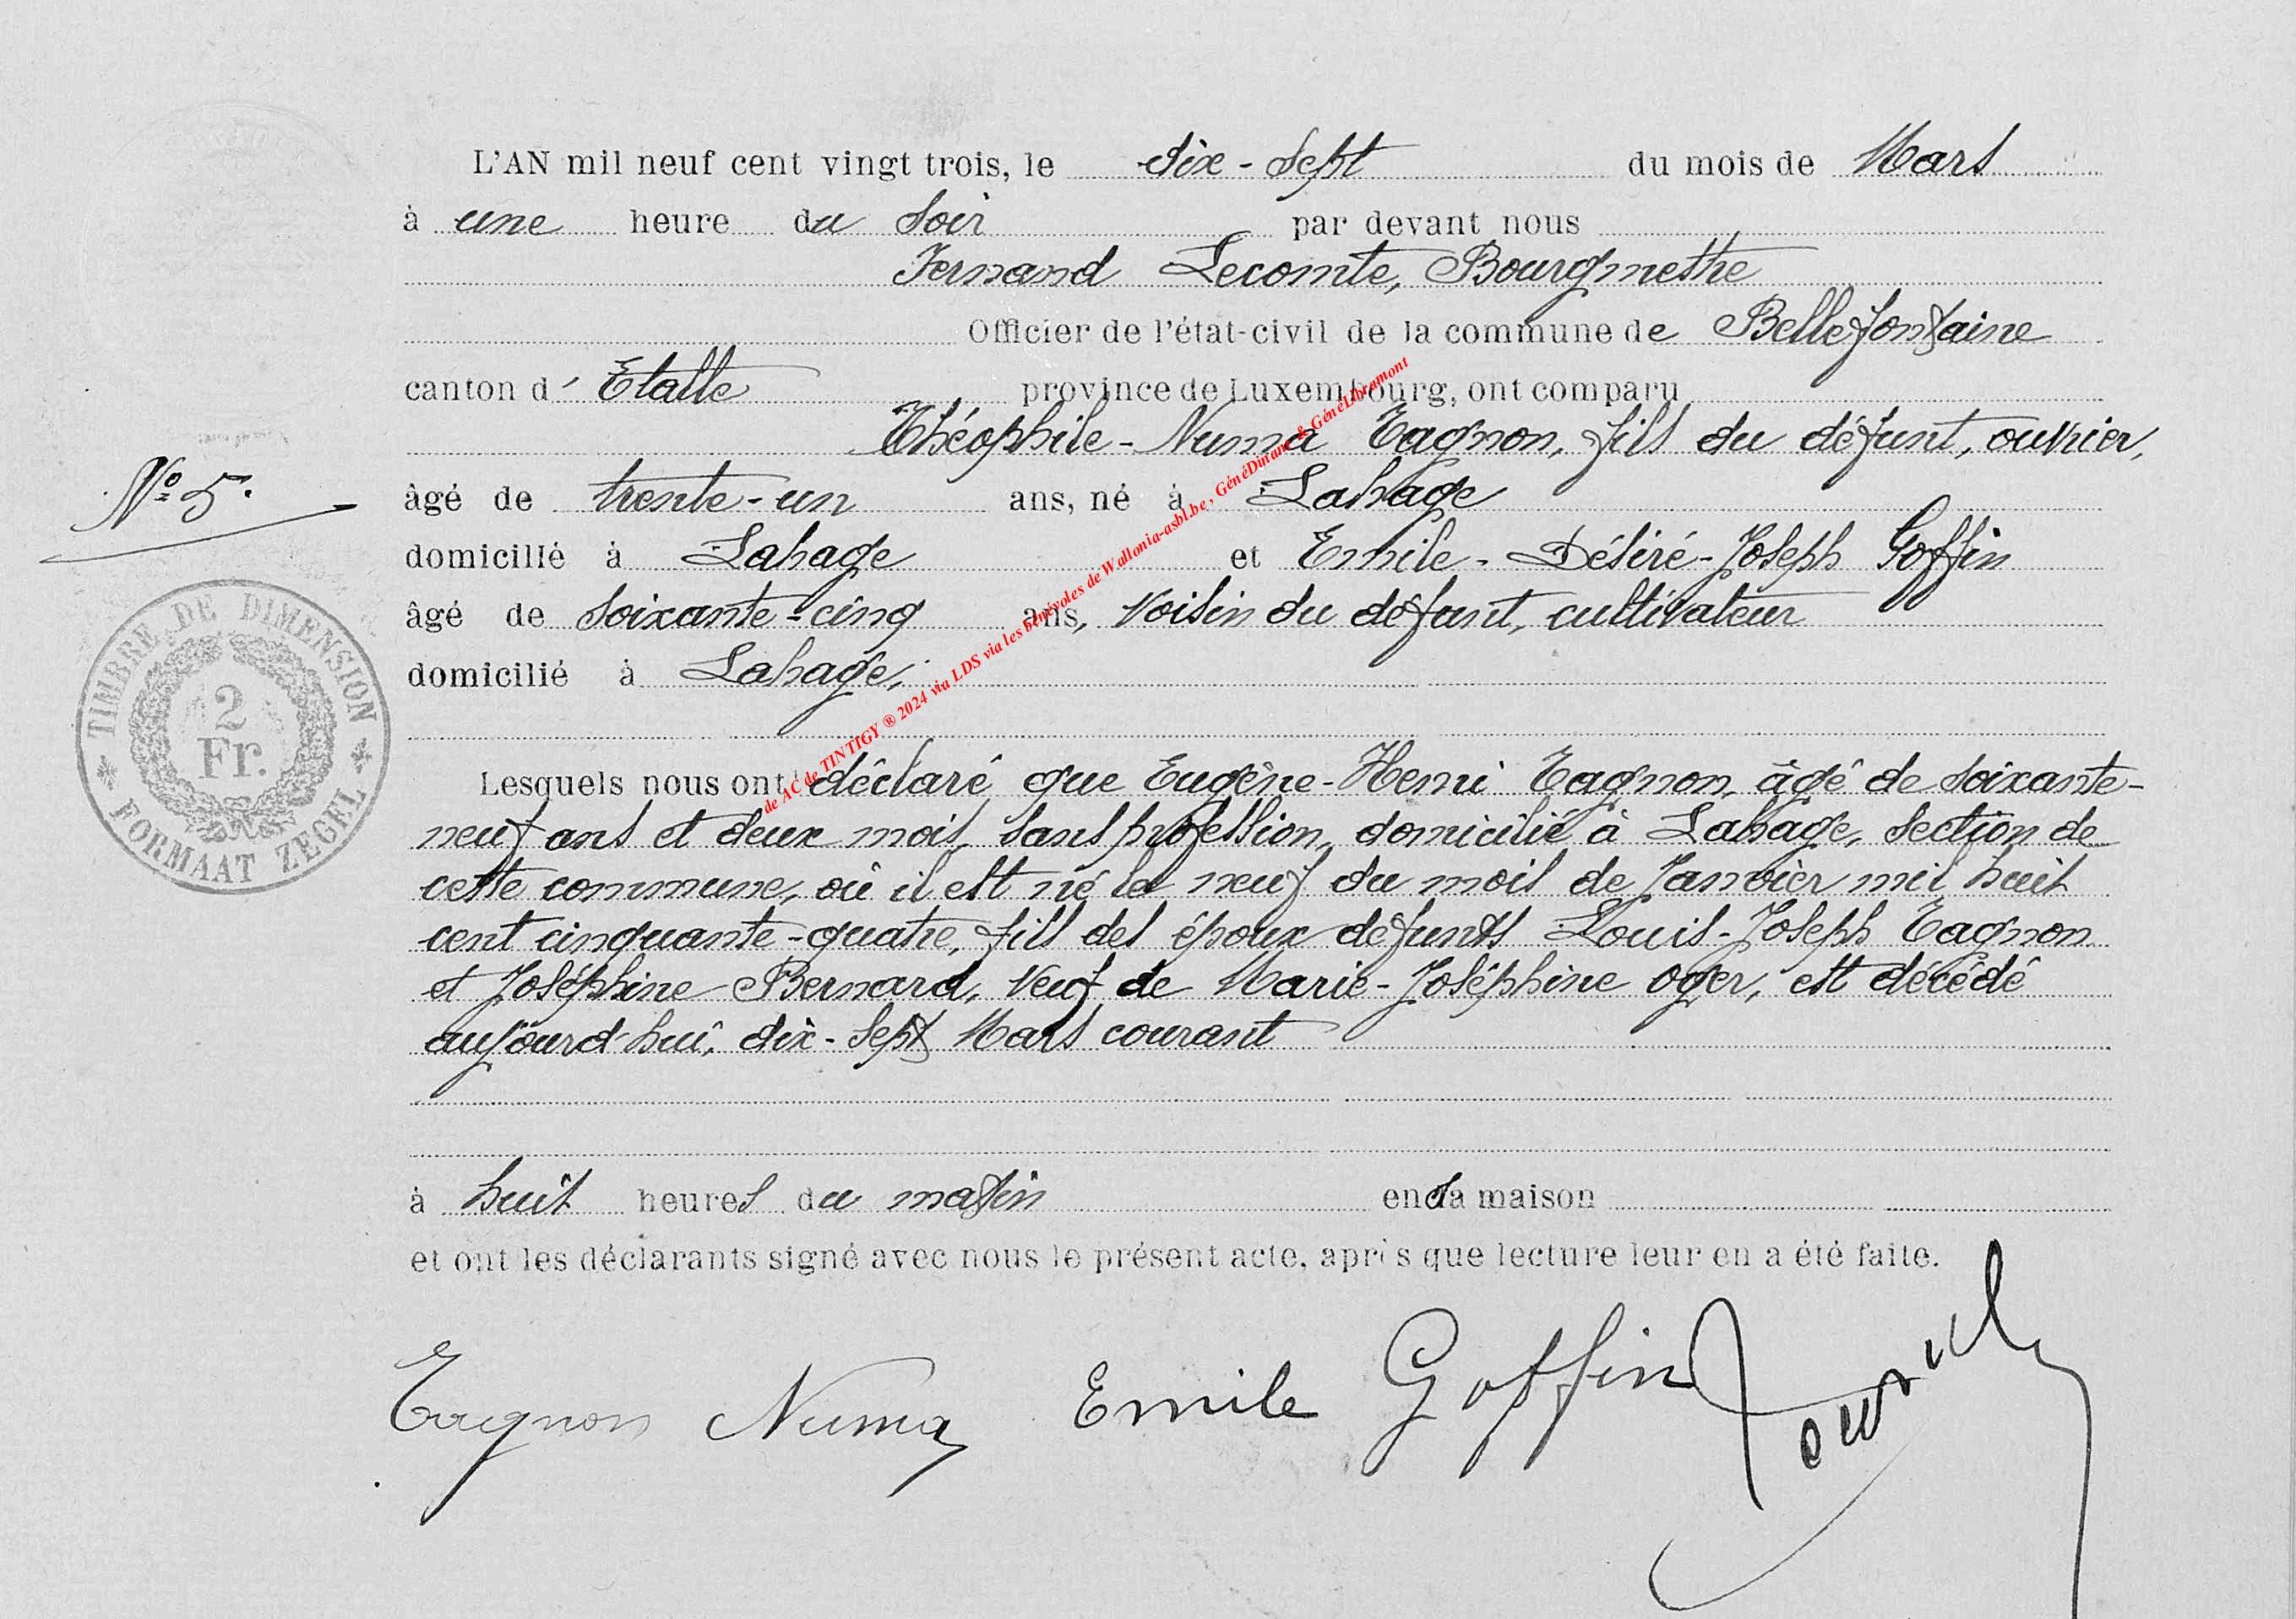 L'AN mil neuf cent vingt trois, le dix-sept du mois de Mars
à une heure du soir par devant nous
Fernand Lecomte, Bourgmestre
Officier de l'état-civil de la commune de Bellefontaine
canton d' Etalle province de Luxembourg, ont comparu
Théophile-Numa Tagnon, fils du défunt, ouvrier,
N° 5.
âgé de trente-un ans, né à Lahage
domicilié à Lahage et Emile-Désiré-Joseph Goffin
âgé de soixante-cinq ans, voisin du défunt, cultivateur
domicilié à Lahage,
TIMBRE DE DIMENSION
2
Fr.
FORMAAT ZEGEL
Lesquels nous ont déclaré que Eugène-Henri Tagnon, âgé de soixante-
neuf ans et deux mois, sans profession, domicilié à Lahage, section de
cette commune, où il est né le neuf du mois de Janvier mil huit
cent cinquante-quatre, fils des époux défunts Louis-Joseph Tagnon
et Joséphine Bernard, veuf de Marie-Joséphine Oger, est décédé
aujourd'hui, dix-sept Mars courant
à huit heures du matin en sa maison
et ont les déclarants signé avec nous le présent acte, après que lecture leur en a été faite.
Tagnon Numa Emile Goffin
de AC de TINTIGY ® 2024 via LDS via les bénévoles de Wallonia-asbl.be, GénéDinant & GénéLibramont